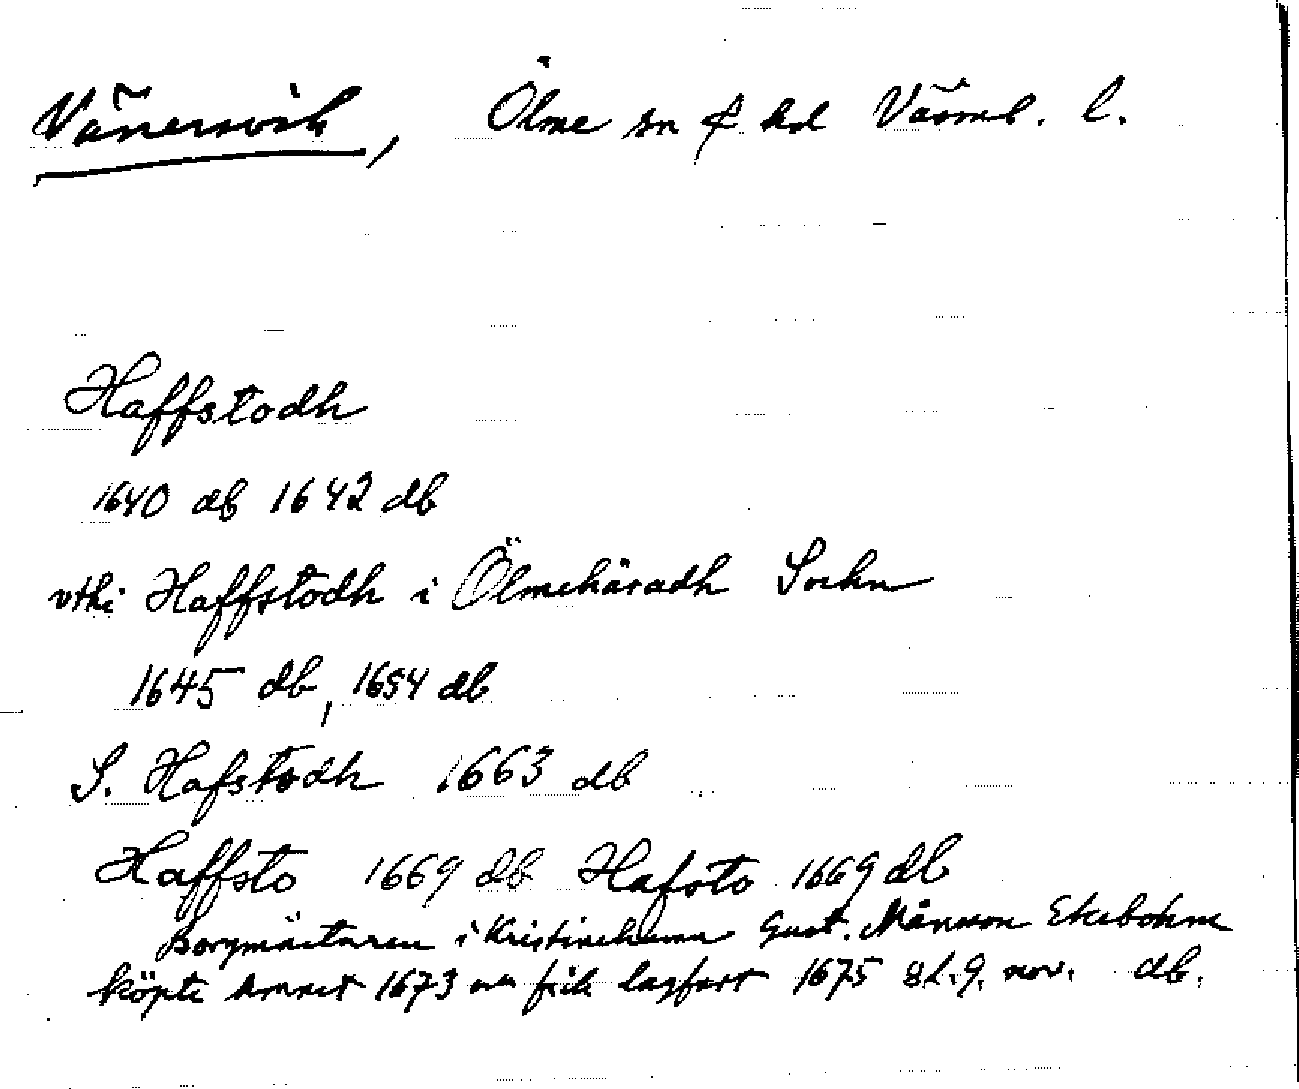 Vänersvik, Ölme sn & hd Värml. l.
Haffstodh
1640 db 1642 db
vthi Haffstodh i Ölmehäradh Sockn
1645 db, 1654 db
S. Hafstodh 1663 db
Haffsto 1669 db Hafsto 1669 db
Borgmästaren i Kristinehamn Gust. Månsson Ekebohm
köpte 1673 fick lagfart 1675 nov. db.